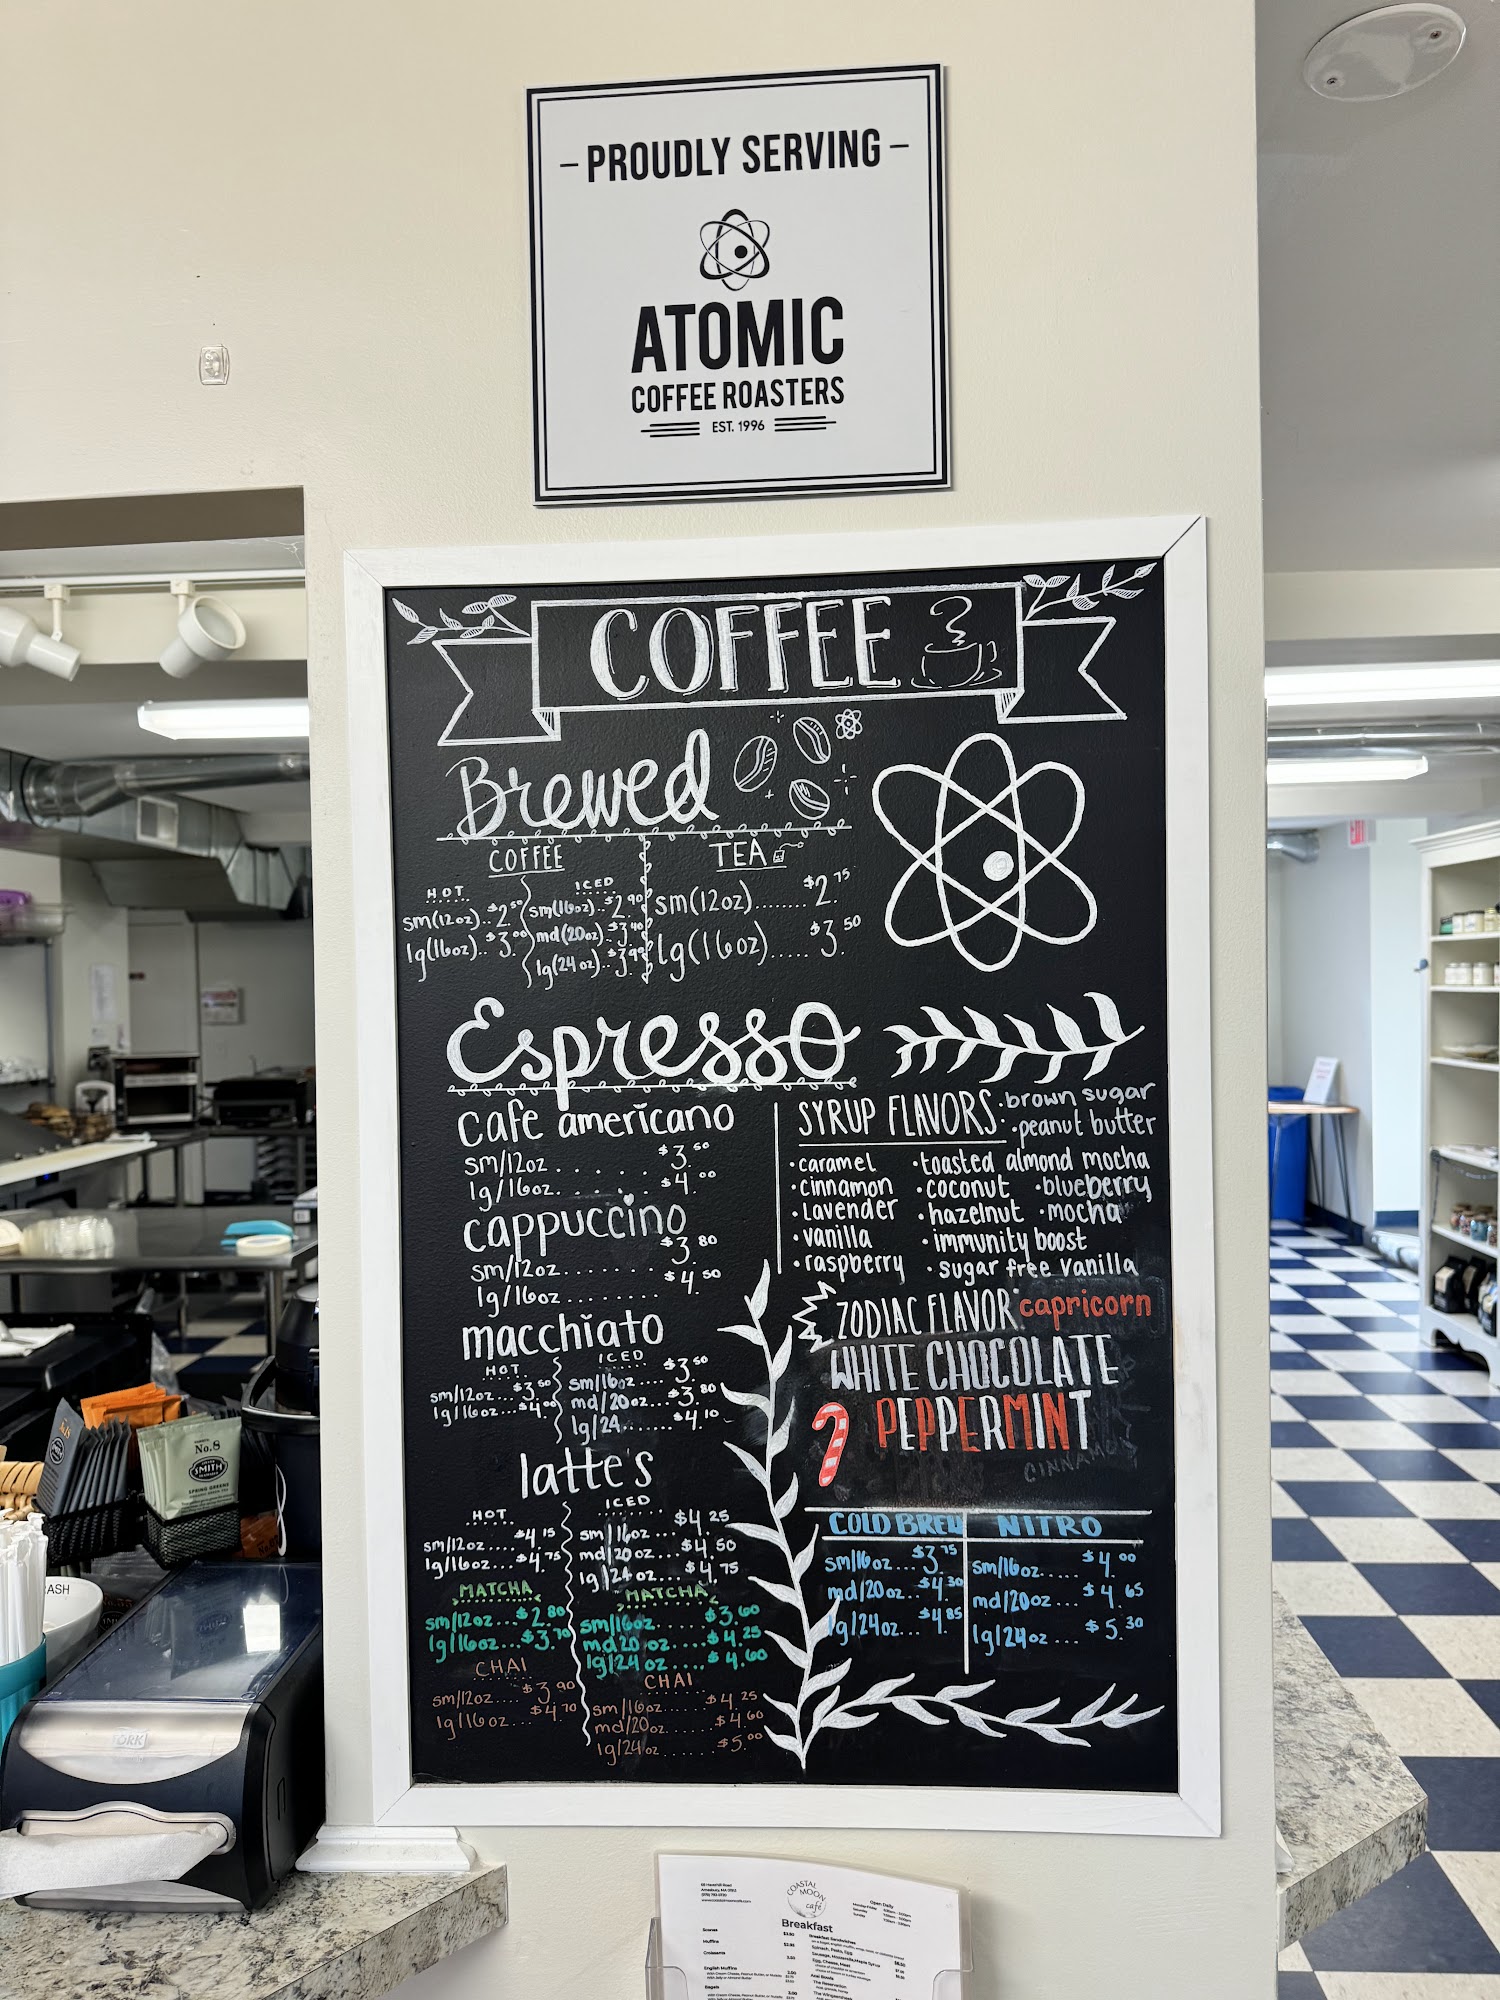 - PROUDLY SERVING -
ATOMIC
COFFEE ROASTERS
EST. 1996
COFFEE
Brewed
COFFEE
HOT
sm(12oz)..$2.50
lg(16oz).$3.00
ICED
sm(16oz)..$2.90
md(20oz).$3.40
lg(24oz)..$3.90
TEA
sm(12oz)........$2.75
lg(16oz).....$3.50
Espresso
cafe americano
sm/12oz......$3.50
lg/16oz......$4.00
cappuccino
sm/12oz.......$3.80
lg/16oz.......$4.50
macchiato
HOT
sm/12oz...$3.50
lg/16oz...$4.00
ICED
sm/16oz...$3.50
md/20oz...$3.80
lg/24....$4.10
latte's
HOT
sm/12oz...$4.15
lg/16oz...$4.75
ICED
sm/16oz...$4.25
md/20oz...$4.50
lg/24oz...$4.75
MATCHA
sm/12oz...$2.80
lg/16oz...$3.70
MATCHA
sm/16oz.....$3.60
md/20oz....$4.25
lg/24oz....$4.60
CHAI
sm/12oz....$3.90
lg/16oz...$4.70
CHAI
sm/16oz.....$4.25
md/20oz.....$4.60
lg/24oz......$5.00
SYRUP FLAVORS:
•brown sugar
•peanut butter
•caramel •toasted almond mocha
•cinnamon •coconut •blueberry
•Lavender •hazelnut •mocha
•vanilla •immunity boost
•raspberry •sugar free vanilla
ZODIAC FLAVOR: capricorn
WHITE CHOCOLATE
PEPPERMINT
CINNAMON
COLD BREW
sm/16oz...$3.75
md/20oz...$4.30
lg/24oz...$4.85
NITRO
sm/16oz.....$4.00
md/20oz....$4.65
lg/24oz...$5.30
No.8
SMITH
SPRING GREENS
RASH
TORK
COASTAL
MOON
café
Open Daily
Breakfast
Scones $3.50
Muffins
Croissants
English Muffins
Bagels
Breakfast Sandwiches
Egg, Cheese, Meat
Acai Bowls